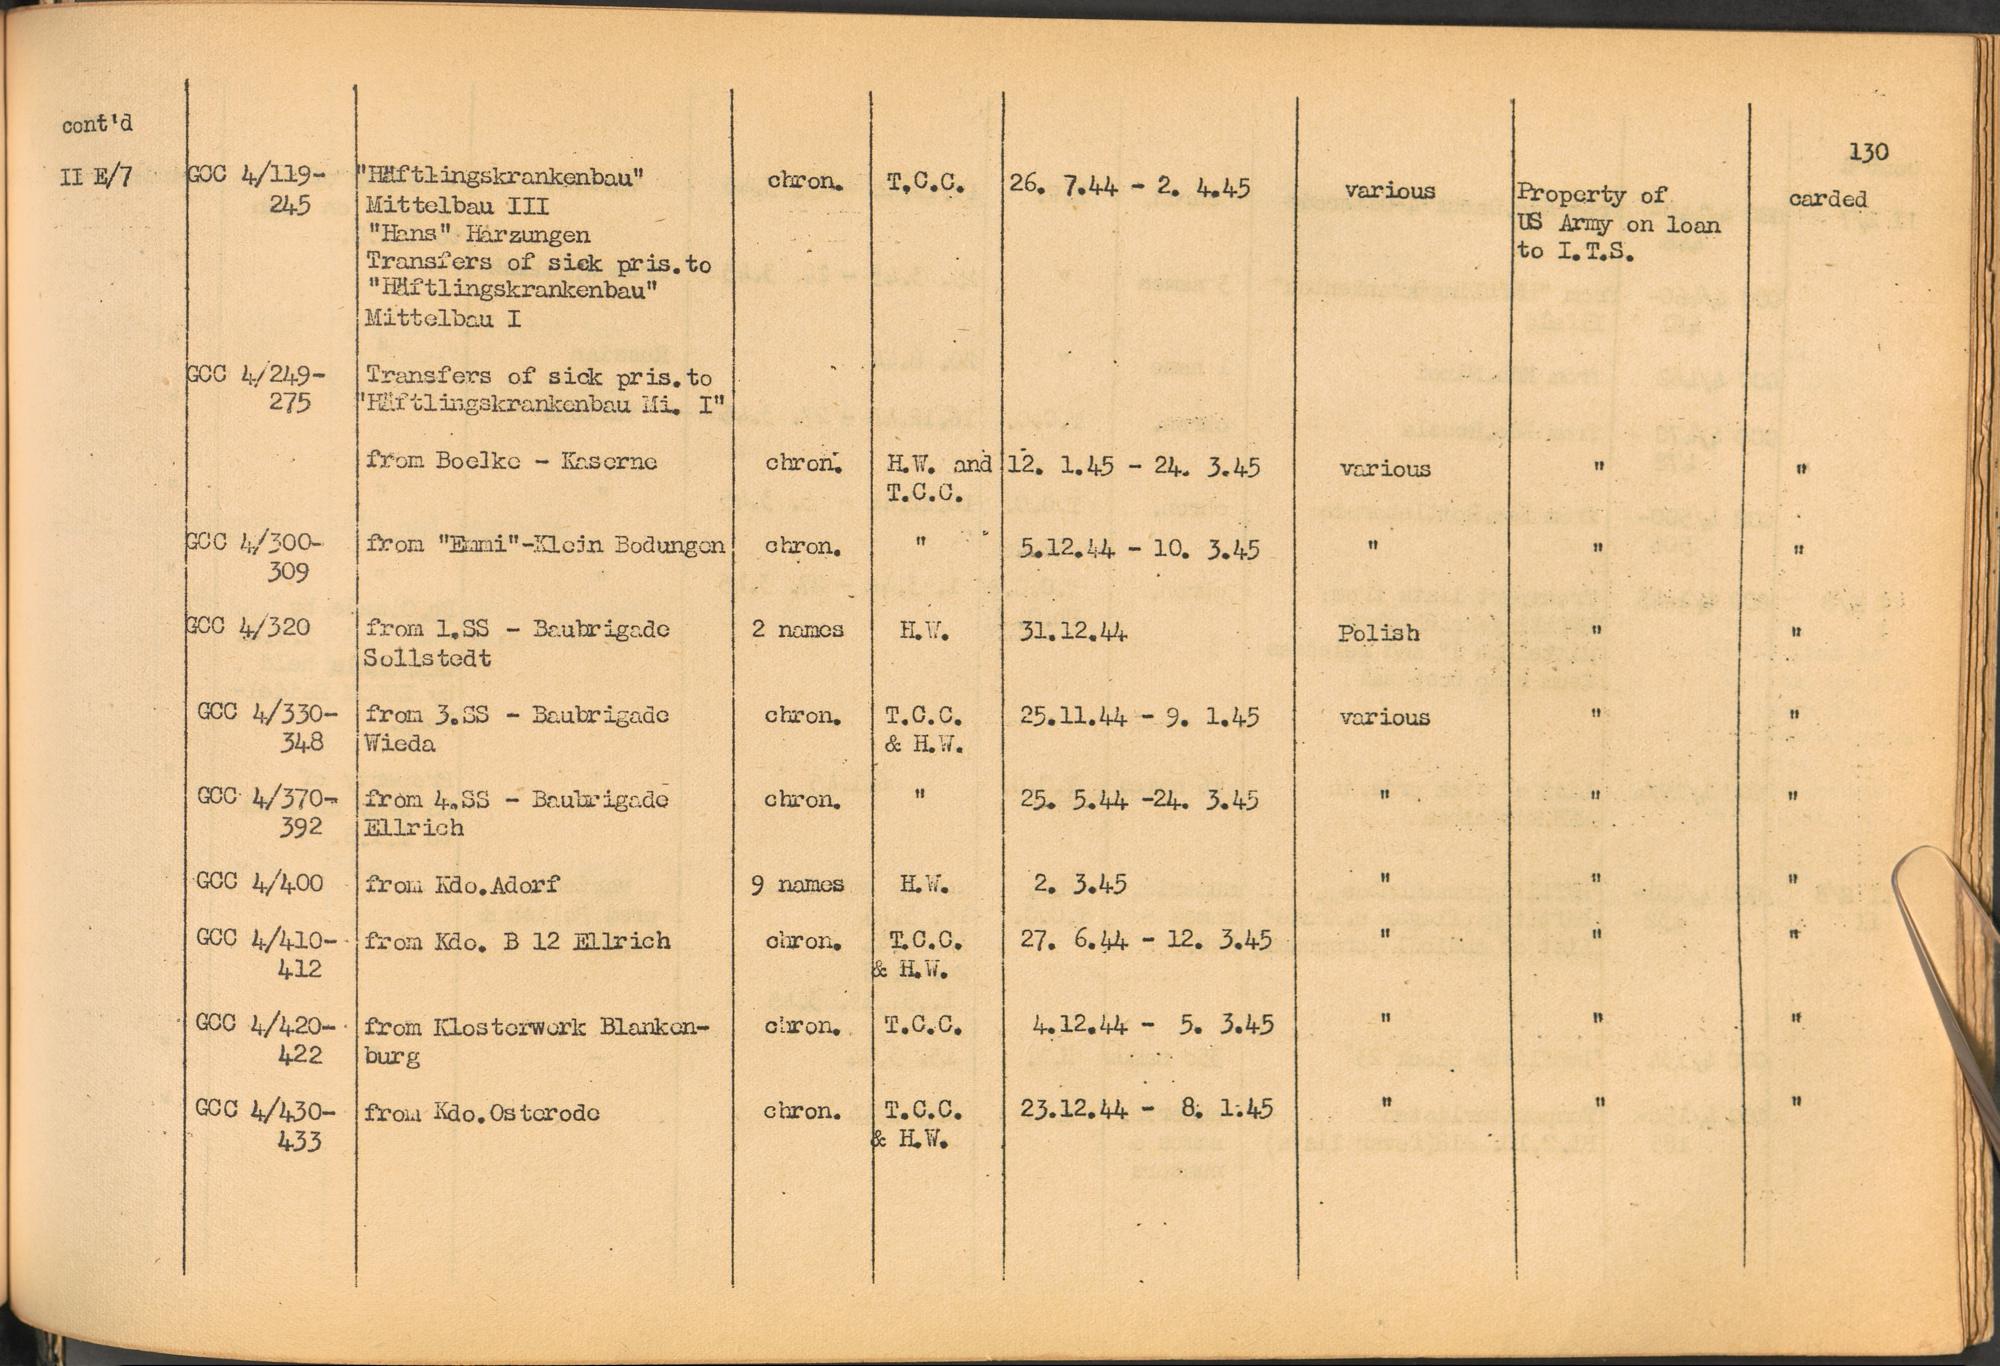 cont'd
130
II E/7 GCC 4/119- "Häftlingskrankenbau" chron. T.C.C. 26. 7.44 - 2. 4.45 various Property of carded
245 Mittelbau III US Army on loan
"Hans" Harzungen to I.T.S.
Transfers of sick pris.to
"Häftlingskrankenbau"
Mittelbau I
GCC 4/249- Transfers of sick pris.to
275 "Häftlingskrankenbau Mi. I"
from Boelke - Kaserne chron. H.W. and 12. 1.45 - 24. 3.45 various " "
T.C.C.
GCC 4/300- from "Emmi"-Klein Bodungen chron. " 5.12.44 - 10. 3.45 " " "
309
GCC 4/320 from 1.SS - Baubrigade 2 names H.W. 31.12.44 Polish " "
Sollstedt
GCC 4/330- from 3.SS - Baubrigade chron. T.C.C. 25.11.44 - 9. 1.45 various " "
348 Wieda & H.W.
GCC 4/370- from 4.SS - Baubrigade chron. " 25. 5.44 -24. 3.45 " " "
392 Ellrich
GCC 4/400 from Kdo.Adorf 9 names H.W. 2. 3.45 " " "
GCC 4/410- from Kdo. B 12 Ellrich chron. T.C.C. 27. 6.44 - 12. 3.45 " " "
412 & H.W.
GCC 4/420- from Klosterwerk Blanken- chron. T.C.C. 4.12.44 - 5. 3.45 " " "
422 burg
GCC 4/430- from Kdo.Osterode chron. T.C.C. 23.12.44 - 8. 1.45 " " "
433 & H.W.